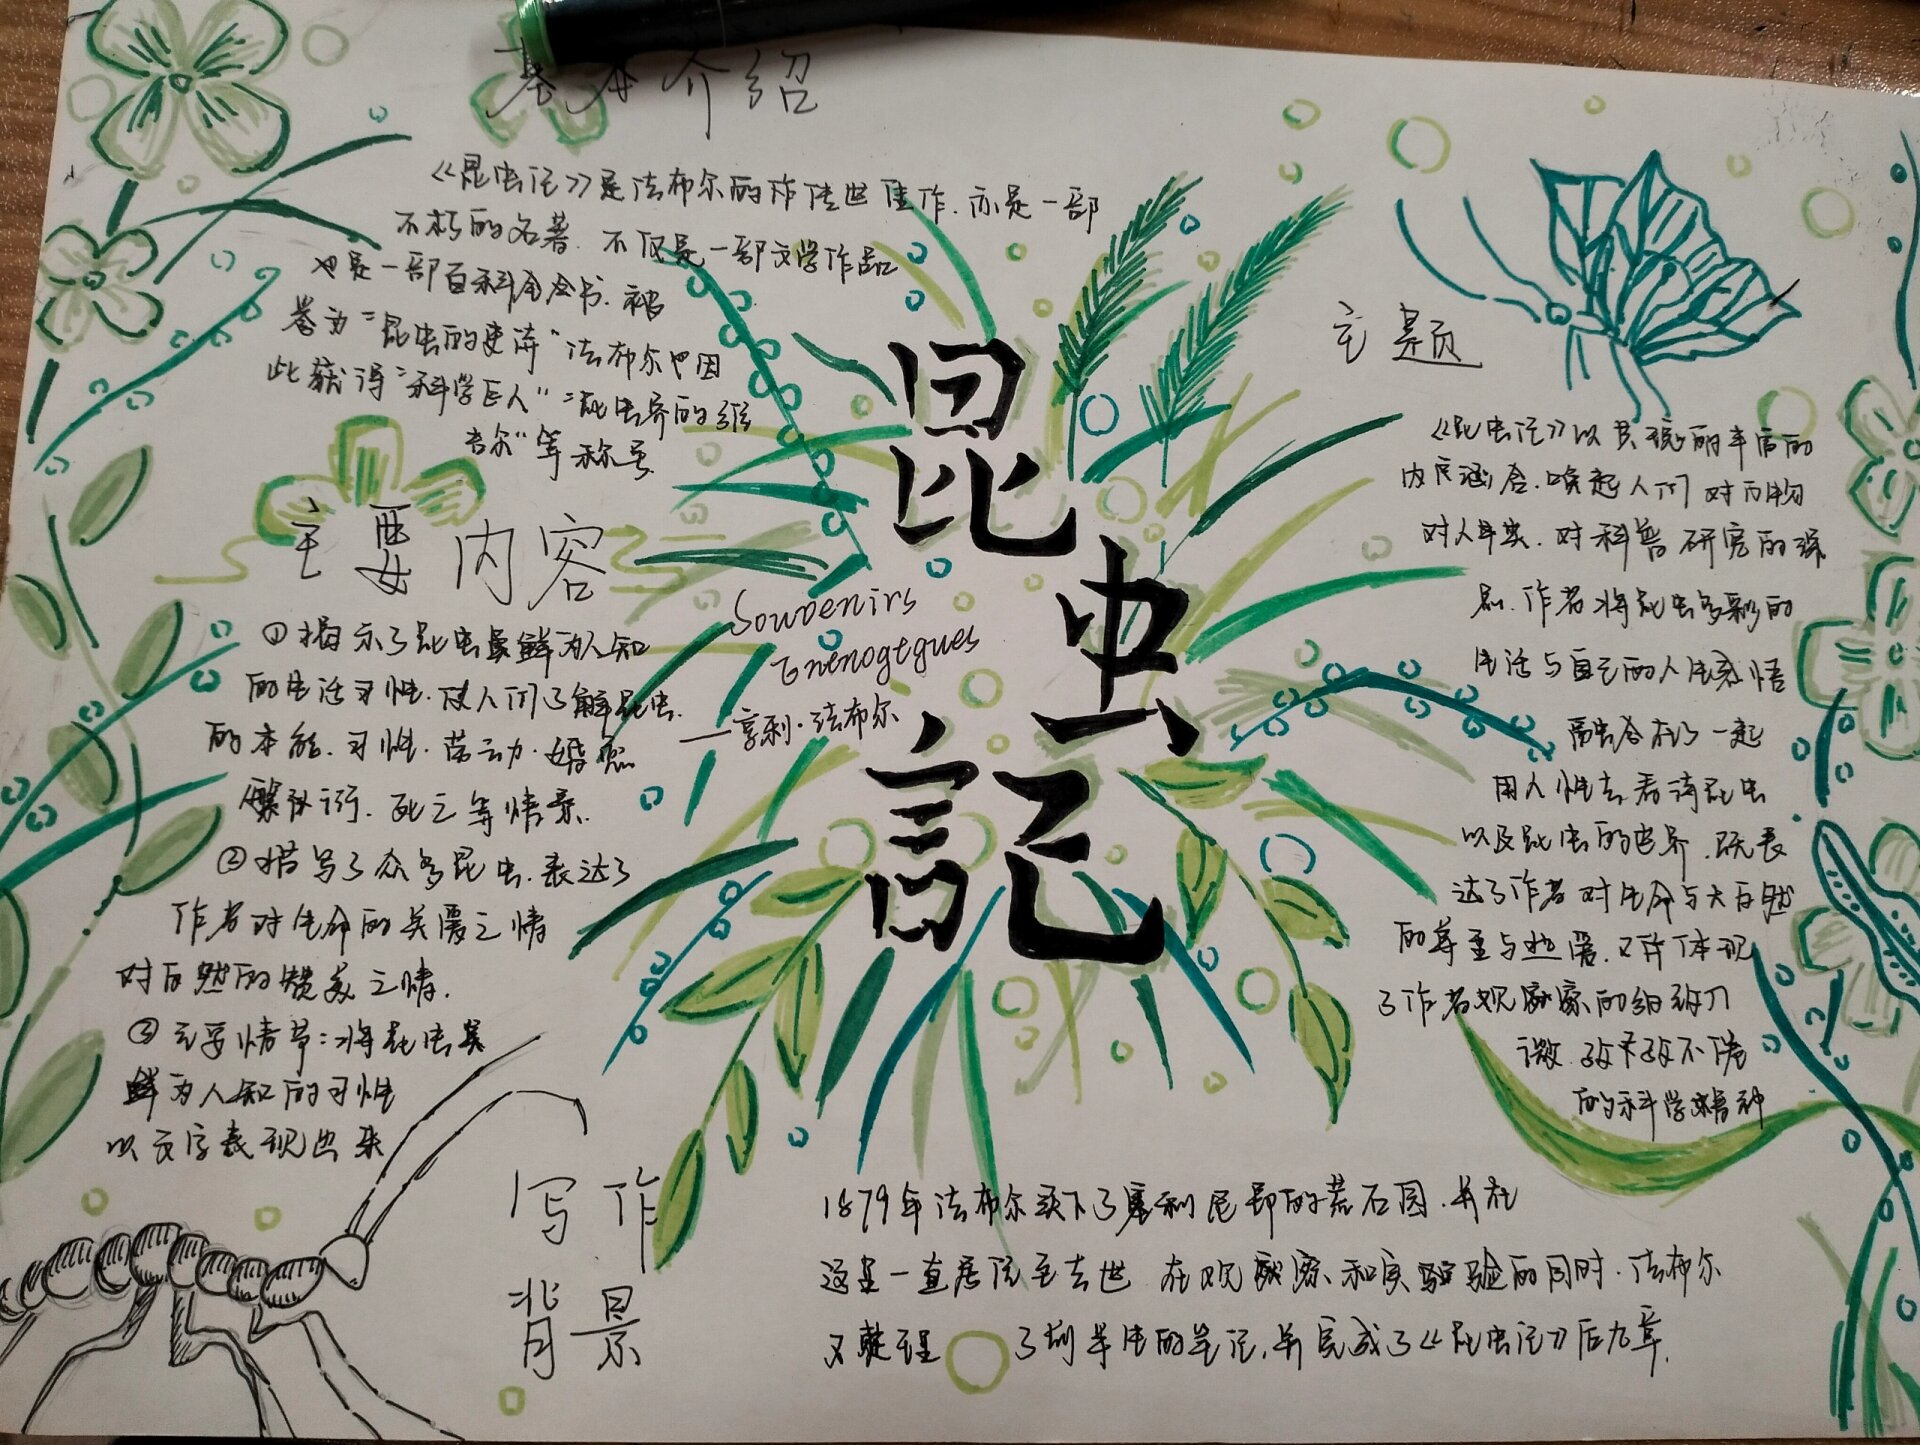 基本介绍
《昆虫记》是法布尔的作传世佳作.亦是一部
不朽的名著.不仅是一部文学作品
也是一部百科全书.被
誉为"昆虫的史诗"法布尔也因
此获得"科学巨人""昆虫界的维
吉尔"等称号
主要内容
①揭示了昆虫鲜为人知
的生活习性.使人们了解昆虫
的本能.习性.劳动.婚恋
繁衍.死亡等情景.
②描写了众多昆虫.表达了
作者对生命的关爱之情
对自然的赞美之情.
③主要情节:将昆虫类
鲜为人知的习性
以文字表现出来
昆
虫
記
Souvenirs
—亨利·法布尔
主题
《昆虫记》以其丰富的
内涵.唤起人们对万物
对人类.对科普研究的深
刻.作者将昆虫多彩的
生活与自己的人生感悟
融合在了一起
用人性去看待昆虫
以及昆虫的世界.既表
达了作者对生命与大自然
的尊重与热爱.又体现
了作者观察的细致入
微.孜孜不倦
的科学精神
写作
背景
1879年法布尔买下了塞利尼昂的荒石园.并在
这里一直居住至去世 在观察和实验的同时.法布尔
又整理了前半生的笔记.并完成了《昆虫记》后九章.